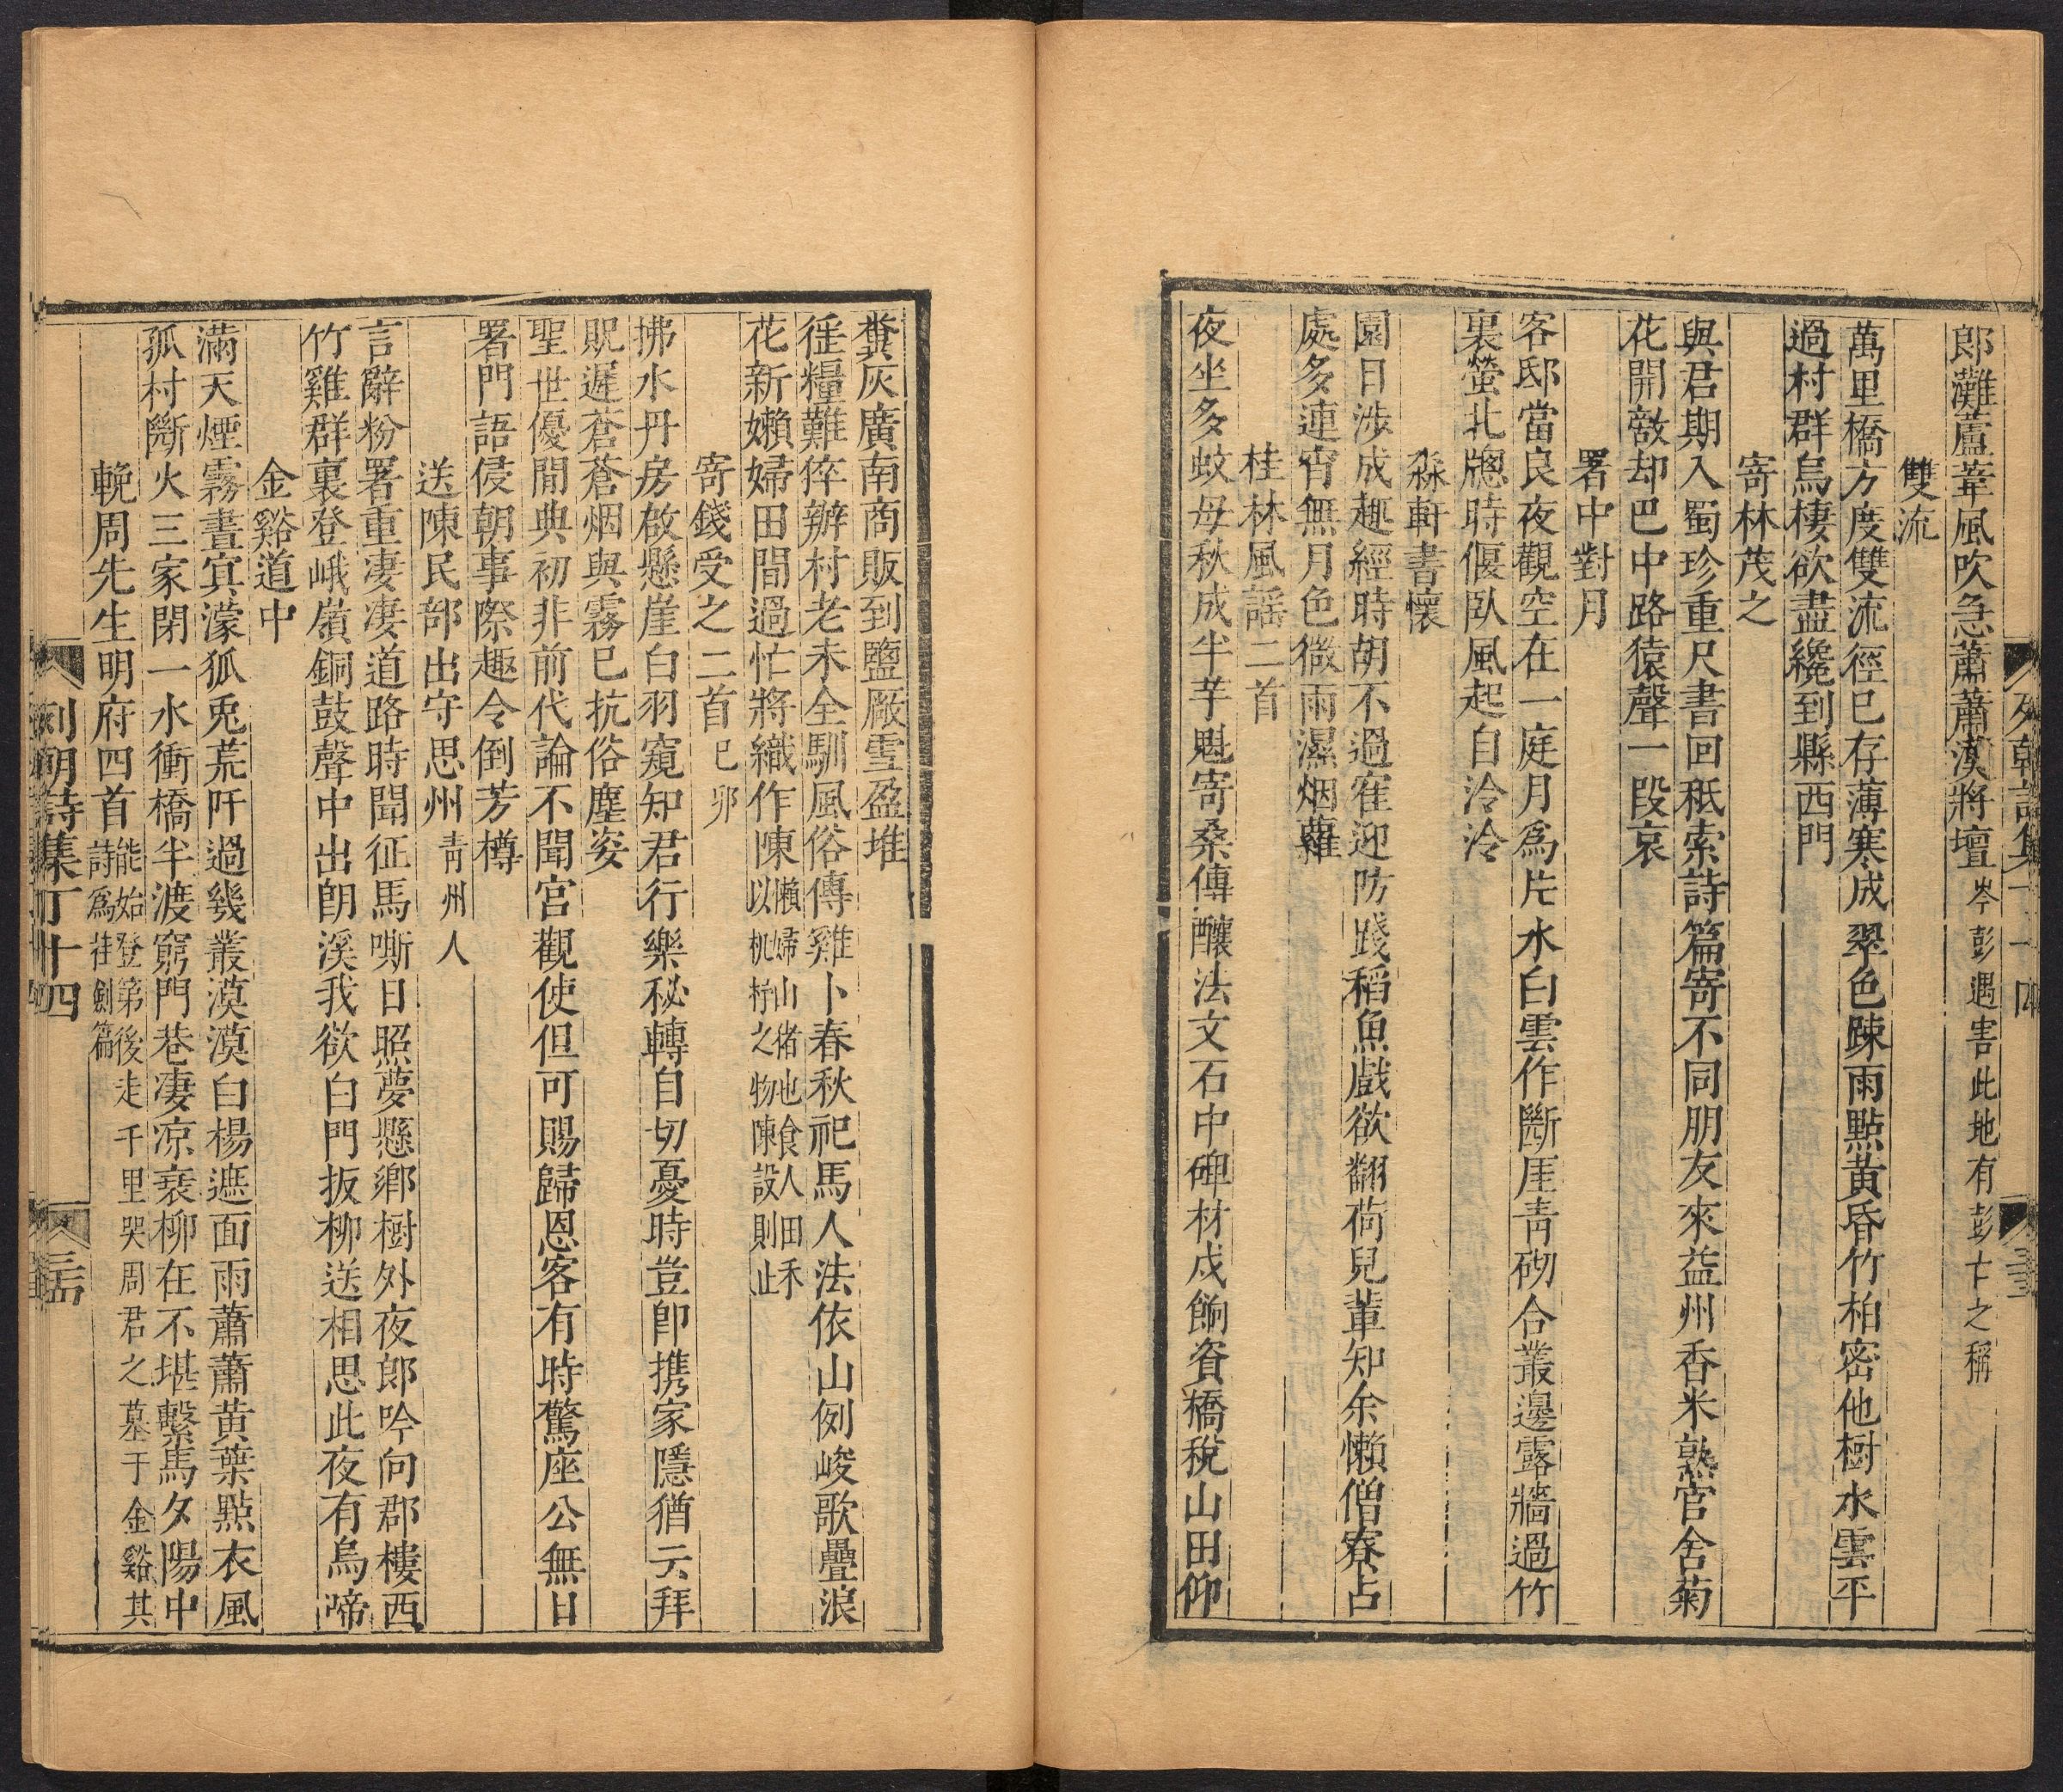 郎灘蘆葦風吹急蕭蕭漢將壇岑彭遇害此地有彭亡之稱
雙流
萬里橋方度雙流徑已存薄寒成翠色踈雨點黃昏竹柏密他樹水雲平
過村群烏棲欲盡纔到縣西門
寄林茂之
與君期入蜀珍重尺書回秪索詩篇寄不同朋友來益州香米熟官舍菊
花開敲却巴中路猿聲一段哀
署中對月
客邸當良夜觀空在一庭月爲片水白雲作斷厓青砌合叢邊露牆過竹
裏螢北牕時偃臥風起自泠泠
淼軒書懷
園日涉成趣經時胡不過寉迎防踐稻魚戲欲翻荷兒輩知余懶僧寮占
處多連宵無月色微雨濕烟蘿
桂林風謡二首
夜坐多蚊母秋成半芋魁寄桑傳釀法文石中碑材戍餉資橋稅山田仰
列朝詩集丁十四
糞灰廣南商販到鹽厰雪盈堆
徭糧難猝辦村老未全馴風俗傳雞卜春秋祀馬人法依山例峻歌疊浪
花新嬾婦田間過忙將織作陳懶婦山猪也食人田禾以机杼之物陳設則止
寄錢受之二首己卯
拂水丹房啟懸崖白羽窺知君行樂秘轉自切憂時豈卽携家隱猶云拜
貺遲蒼蒼烟與霧已抗俗塵姿
聖世優閒典初非前代論不聞宮觀使但可賜歸恩客有時驚座公無日
署門語侵朝事際趣令倒芳樽
送陳民部出守思州青州人
言辭粉署重凄凄道路時聞征馬嘶日照夢懸鄉樹外夜郎吟向郡樓西
竹雞群裏登峨嶺銅鼓聲中出朗溪我欲白門扳柳送相思此夜有烏啼
金谿道中
滿天煙霧晝㝠濛狐兎荒阡過幾叢漠漠白楊遮面雨蕭蕭黃葉點衣風
孤村斷火三家閉一水衝橋半渡窮門巷凄凉衰柳在不堪繫馬夕陽中
輓周先生明府四首能始登第後走千里哭周君之墓于金谿其詩爲挂劍篇
列朝詩集丁十四